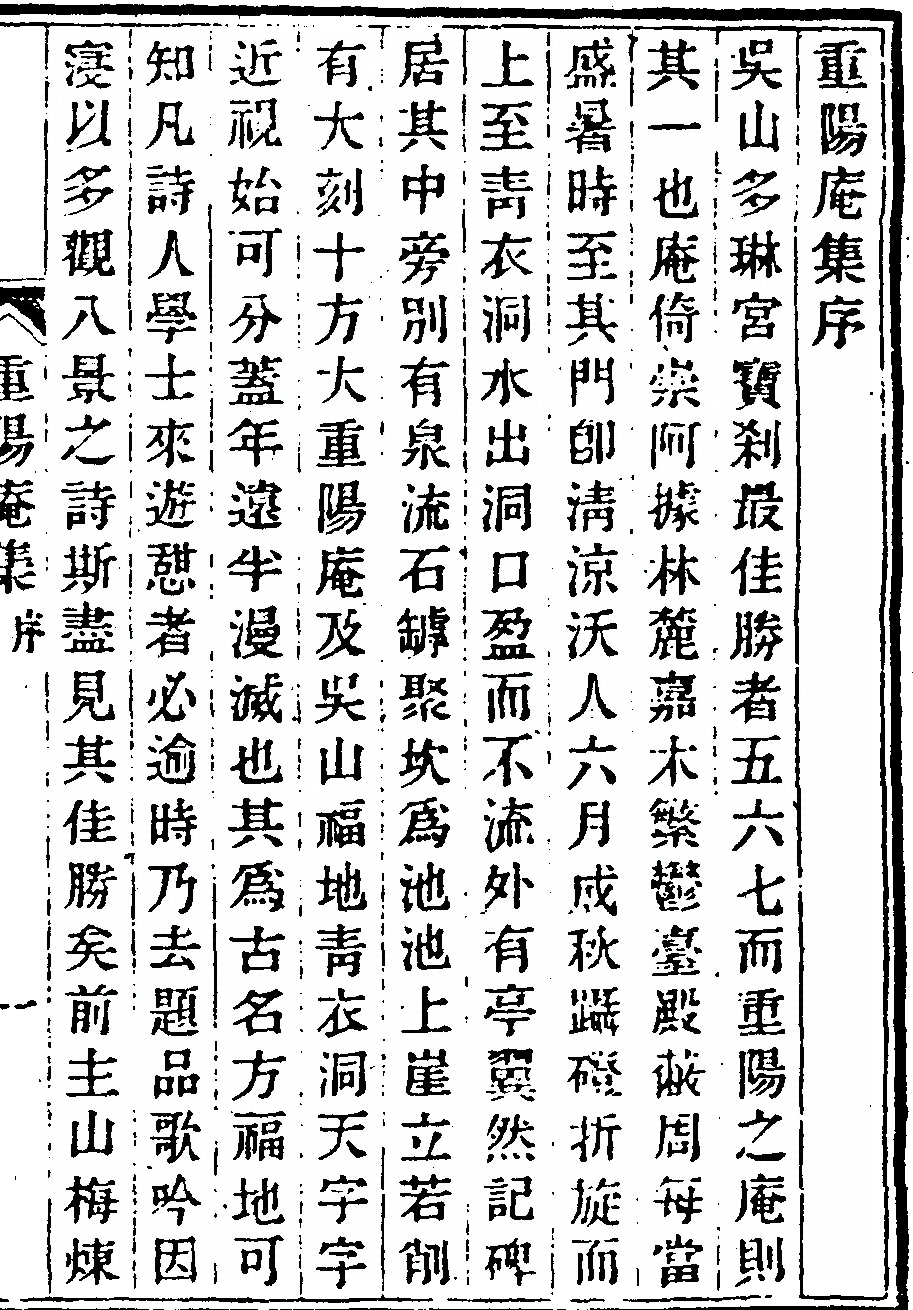 重陽庵集序
吳山多琳宮寶刹最佳勝者五六七而重陽之庵則
其一也庵倚崇阿據林麓嘉木繁鬱臺殿蔽周每當
盛暑時至其門卽淸涼沃人六月成秋躡磴折旋而
上至靑衣洞水出洞口盈而不流外有亭翼然記碑
居其中旁別有泉流石罅聚坎爲池池上崖立若削
有大刻十方大重陽庵及吳山福地靑衣洞天字字
近視始可分蓋年遠半漫滅也其爲古名方福地可
知凡詩人學士來遊憩者必逾時乃去題品歌吟因
寖以多觀八景之詩斯盡見其佳勝矣前主山梅煉
重陽庵集
序
一